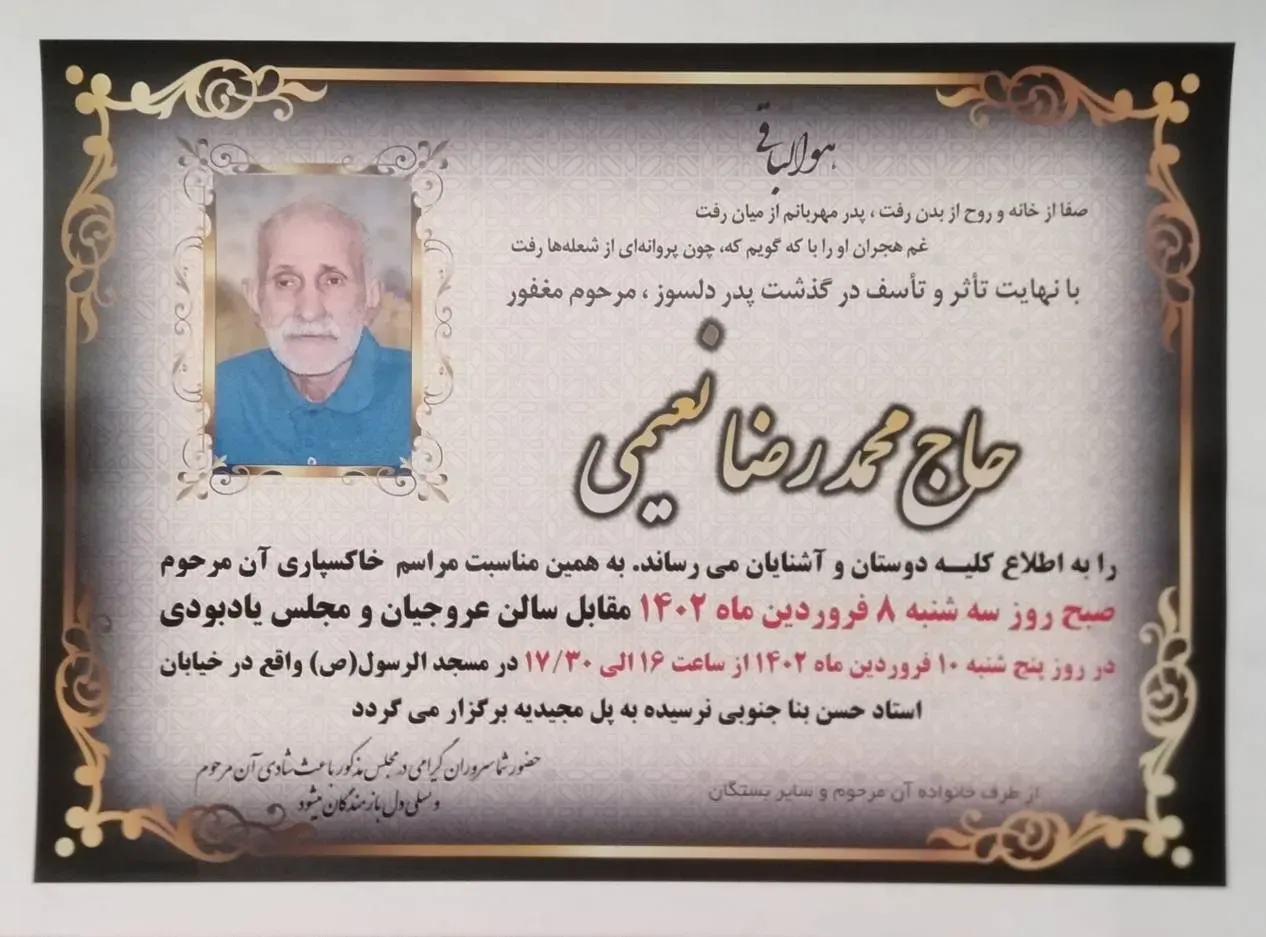 هوالباقی
صفا از خانه و روح از بدن رفت ، پدر مهربانم از میان رفت
غم هجران او را با که گویم که، چون پروانه‌ای از شعله‌ها رفت
با نهایت تأثر و تأسف در گذشت پدر دلسوز ، مرحوم مغفور
حاج محمد رضا نعیمی
را به اطلاع کلیـه دوستان و آشنایان می رساند. به همین مناسبت مراسم خاکسپاری آن مرحوم
صبح روز سه شنبه ۸ فروردین ماه ۱۴۰۲ مقابل سالن عروجیان و مجلس یادبودی
در روز پنج شنبه ۱۰ فروردین ماه ۱۴۰۲ از ساعت ۱۶ الی ۱۷/۳۰ در مسجد الرسول(ص) واقع در خیابان
استاد حسن بنا جنوبی نرسیده به پل مجیدیه برگزار می گردد
حضور شما سروران گرامی در مجلس مذکور باعث شادی آن مرحوم
و تسلی دل بازماندگان میشود
از طرف خانواده آن مرحوم و سایر بستگان